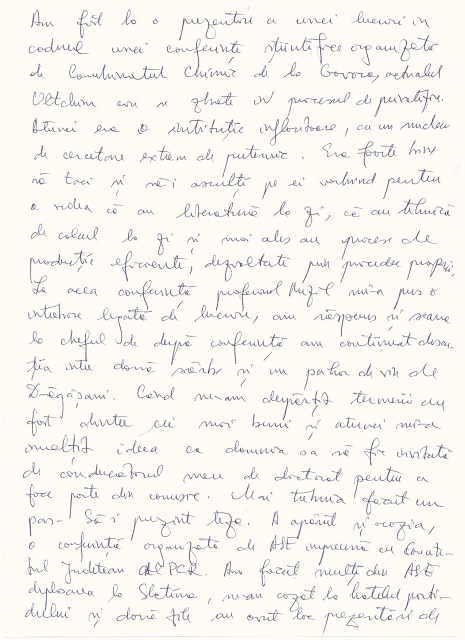 Am fost la o prezentare a unei lucrări în
cadrul unei conferințe științifice organizată
de Combinatul Chimic de la Govora, actualul
Oltchim care se zbate în procesul de privatizare.
Atunci era o instituție înfloritoare, cu un nucleu
de cercetare extrem de puternic. Era foarte bine
să taci și să-i asculți pe ei vorbind pentru
a vedea că au literatură la zi, că au tehnică
de calcul la zi și mai ales au procese de
producție eficiente, dezvoltate prin procedee proprii.
La acea conferință profesorul mi-a pus o
întrebare legată de lucrare, am răspuns și seara
la cheful de după conferință am continuat discu-
ția între două sărbe și un pahar de vin de
Drăgășani. Când ne-am despărțit termenii au
fost dintre cei mai buni și atunci mi-a
ideea ca domnia sa să fie invitată
de conducătorul meu de doctorat pentru a
face parte din comisie. Mai trebuia făcut un
pas - Să-i prezint teza. A apărut și ocazia,
o conferință organizată de ASE împreună cu Comite-
tul Județean al PCR. Am făcut mulți din ASE
deplasarea la Slatina, ne-au cazat la hotelul parti-
dului și două zile au avut loc prezentări de